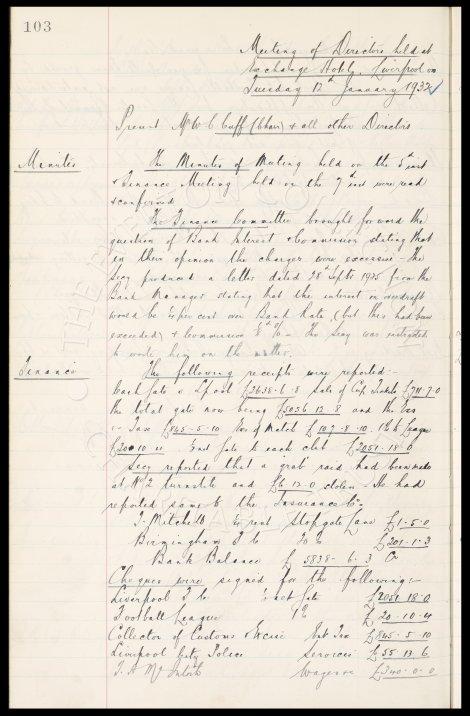 103
Meeting of Directors held at
Exchange Hotel, Liverpool on
Tuesday 12th January 1932
Present Mr W. C. Cuff (Chair) & all other Directors
Minutes
The Minutes of Meeting held on the 5th inst
& Finance Meeting held on the 7th inst were read
& confirmed
The Finance Committee brought forward the
question of Bank Interest & Commission stating that
in their opinion the charges were excessive - the
Secy produced a letter dated 28th Septr 1925 from the
Bank Manager stating that the interest on overdraft
would be ½ per cent over Bank Rate, (but this had been
exceeded) & Commission - The Secy was instructed
to write him on the matter.
Finance
The following receipts were reported:-
Cash Gate v L'pool £2638-6-8 Sale of Cup Tickets £711-7-0
the total gate now being £5056 12. 8 and the Ent
Tax £845-5-10 Exs of Match £107-8-10. 1% to League
£20 10 4. Net Gate to each club £2051-18-0
Secy reported that a grab raid had been made
at No 2 turnstile and £6 13-0 stolen - He had
reported same to the Insurance Co.
J. Mitchell rent Stopgate Lane £1-5-0
Birmingham F. C. £201-1-3
Bank Balance £5838-6-3 Cr
Cheques were signed for the following:-
Liverpool F. C. Net Gate £2051 18-0
Football League 1% £20-10-4
Collector of Customs & Excise Ent Tax £845-5-10
Liverpool City Police Services £55-13-6
T. H. McIntosh Wages £340-0-0